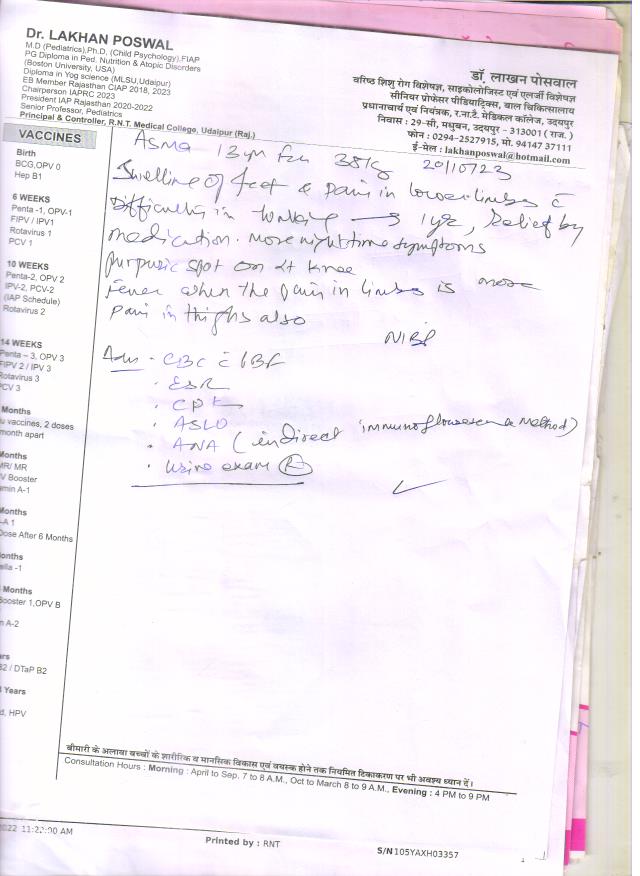 Dr. LAKHAN POSWAL
M.D (Pediatrics),Ph.D, (Child Psychology),FIAP
PG Diploma in Ped. Nutrition & Atopic Disorders
(Boston University, USA)
Diploma in Yog science (MLSU,Udaipur)
EB Member Rajasthan CIAP 2018, 2023
Chairperson IAPRC 2023
President IAP Rajasthan 2020-2022
Senior Professor, Pediatrics
Principal & Controller, R.N.T. Medical College, Udaipur (Raj.)
डॉ. लाखन पोसवाल
वरिष्ठ शिशु रोग विशेषज्ञ, साइकोलोजिस्ट एवं एलर्जी विशेषज्ञ
सीनियर प्रोफेसर पीडियाट्रिक्स, बाल चिकित्सालय
प्रधानाचार्य एवं नियंत्रक, र.ना.टै. मेडिकल कॉलेज, उदयपुर
निवास : 29-सी, मधुबन, उदयपुर - 313001 ( राज. )
फोन : 0294-2527915, मो. 94147 37111
ई-मेल : lakhanposwal@hotmail.com
VACCINES
Birth
BCG,OPV 0
Hep B1
6 WEEKS
Penta -1, OPV-1
FIPV / IPV1
Rotavirus 1
PCV 1
10 WEEKS
Penta-2, OPV 2
IPV-2, PCV-2
(IAP Schedule)
Rotavirus 2
14 WEEKS
Penta – 3, OPV 3
FIPV 2 / IPV 3
Rotavirus 3
PCV 3
Months
u vaccines, 2 doses
month apart
Months
MR/ MR
V Booster
amin A-1
Months
-A 1
Dose After 6 Months
onths
ella -1
Months
Booster 1,OPV B
n A-2
ars
B2 / DTaP B2
Years
d, HPV
Asma 13 38 kg 20/10/23
Swelling of feet & pain in lower limbs c̄
Difficulty in walking → 1 yr, relief by
medication. More night time symptoms
Purpuric spot on Lt knee
Fever when the pain in limbs is more
Pain in thighs also
NIBP
Adv - CBC c̄ PBF
· ESR
· CPK
· ASLO
· ANA (indirect immunoflowrescence method)
· Urine exam (R)
बीमारी के अलावा बच्चों के शारीरिक व मानसिक विकास एवं वयस्क होने तक नियमित टिकाकरण पर भी अवश्य ध्यान दें।
Consultation Hours : Morning : April to Sep, 7 to 8 A.M., Oct to March 8 to 9 A.M., Evening : 4 PM to 9 PM
2022 11:22:00 AM
Printed by : RNT
S/N105YAXH03357